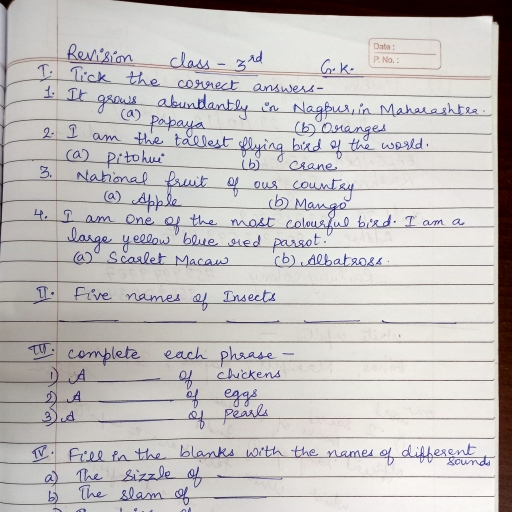 Revision class - 3rd G.K.
Date :
P. No. :
I. Tick the correct answers-
1. It grows abundantly in Nagpur, in Maharashtra.
(a) Papaya (b) Oranges
2. I am the tallest flying bird of the world.
(a) Pitohui (b) Crane
3. National fruit of our country
(a) Apple (b) Mango
4. I am one of the most colourful bird. I am a
large yellow blue red parrot.
(a) Scarlet Macaw (b) Albatross.
II. Five names of Insects
III. Complete each phrase -
1) A ______ of chickens
2) A ______ of eggs
3) A ______ of pearls
IV. Fill in the blanks with the names of different
sounds
a) The sizzle of ______
b) The slam of ______